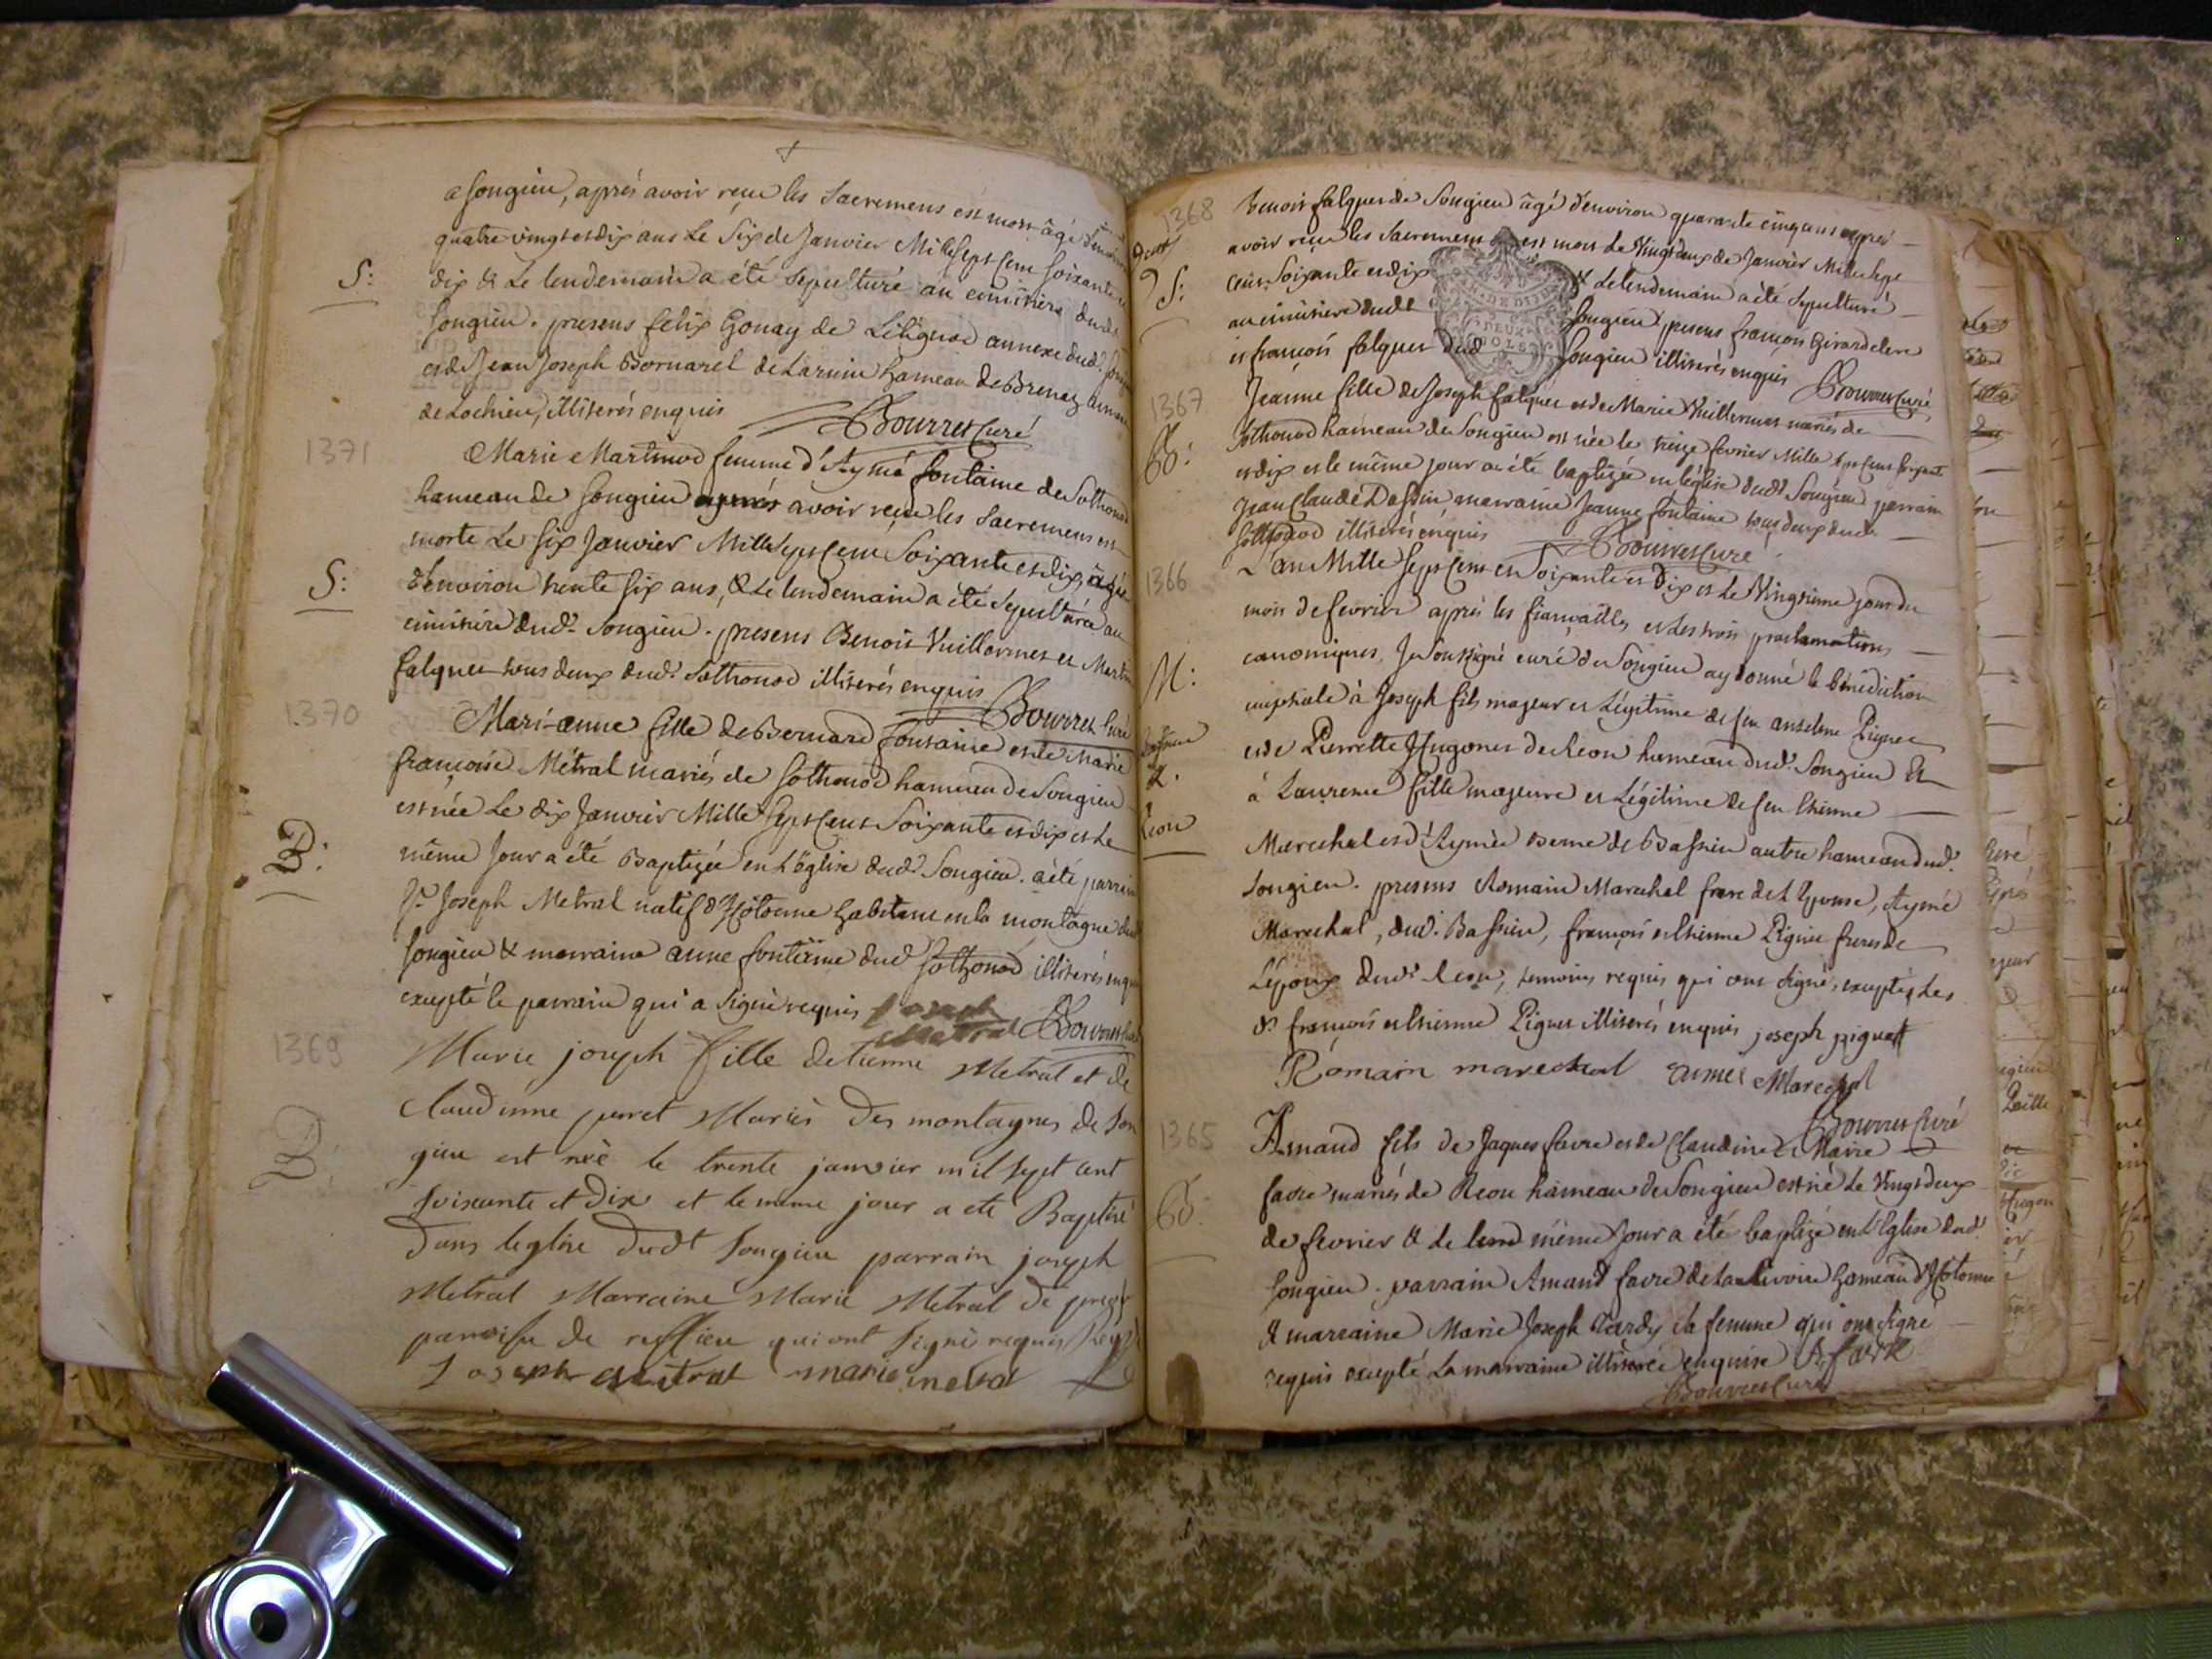 a Songieu, aprés avoir reçu les Sacremens est mort âgé d'environ
quatre vingt et dix ans Le Six de Janvier Mille Sept Cent Soixante et
S:
dix & Le lendemain a été sepulturé au cimitière dudt
Songieu. presens felix Gonay de Lilignod annexe dudt
et de Jean Joseph Bornarel de hameau de Brenaz
de Lochieu, illiterés enquis
Bourret Curé
1371
Marie Martinod femme d'Aymé fontaine de Sothonod
hameau de Songieu aprés avoir reçu les Sacremens est
morte Le Six Janvier Mille Sept Cent Soixante et dix, âgée
S:
d'environ trente six ans, & Le lendemain a été Sepulturée au
cimitière dudt Songieu. presens Benoit Vuillermet et
falquet tous deux dudt Sothonod illiterés enquis
Bourret Curé
1370
Mari-anne fille de Bernard fontaine et de Marie
françoise Métral mariés de Sothonod hameau de Songieu
est née Le dix Janvier Mille Sept Cent Soixante et dix et Le
B:
même Jour a été Baptizée en L'église dudt Songieu. a été parrain
Sr Joseph Metral natif d'Hotonne habitant en la montagne dudt
Songieu & marraine anne fontaine dudt Sothonod illiterés enquis
excepté le parrain qui a signé requis Joseph
Metral Bourret Curé
1369
Marie joseph fille detienne Metral et de
Claudinne Mariés des montagnes de Son
gieu est née le trente janvier mil sept cent
B.
soixante et dix et le meme jour a ete Baptisé
dans leglise dudt Songieu parrain joseph
Metral Marraine Marie Metral de
paroisse de ruffieu qui ont signé requis
Joseph metral marie metral
1368
benoit falquet de Songieu âgé d'environ quarante cinq ans aprés
avoir reçu les Sacremens est mort Le Vingt deux de Janvier Mille Sept
S:
Cent Soixante et dix & Le lendemain a été Sepulturé
au cimitiere dudt Songieu presens françois Girardclerc
et françois falquet dudt Songieu illiterés enquis
Bourret Curé
1367
Jeanne fille de Joseph falquet et de Marie Vuillermet mariés de
B:
Sothonod hameau de Songieu est née le treize fevrier Mille Sept Cent Soixante
et dix et le même jour a été baptizée en léglise dudt Songieu parrain
Jean Claude marraine Jeanne fontaine tous deux dudt
Sothonod illiterés enquis
Bourret Curé
1366
L'an Mille Sept Cent et Soixante et Dix et Le Vingtième jour du
mois de fevrier aprés les fiançailles et les trois proclamations
canoniques, Je Soussigné curé de Songieu ay donné la bénédiction
M:
nuptiale à Joseph fils majeur et Légitime de feu anselme Piguet
et de Pierrette Hugonet de Reou hameau dudt Songieu Et
&
à Laurence fille majeure et Légitime de feu Etienne
Reou
Marechal et d'Aymée de Bassieu autre hameau dudt
Songieu. presens Romain Marechal frere de L'Epouse, Aymé
Marechal, dudt Bassieu, françois et Etienne Piguet freres de
L'époux dudt Reou, temoins requis qui ont signé, exceptés Les
dt françois et Etienne Piguet illiterés enquis joseph piguet
Romain marechal aimé Marechal
Bourret Curé
1365
Amand fils de Jaques favre et de Claudine Marie
favre mariés de Reou hameau de Songieu est né Le Vingt deux
B.
de fevrier & Le lend même Jour a été baptizé en L'Eglise dudt
Songieu. parrain Amand favre de hameau d'Hotonne
& marraine Marie Joseph Tardy sa femme qui ont signé
requis excepté La marraine illiterée enquise A. favre
Bourret Curé